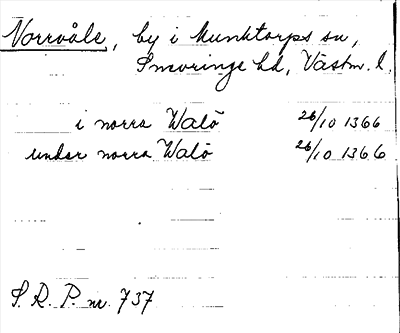 Norrvåle, by i Munktorps sn,
Snevringe hd, Västm. l.
i norra Walö 26/10 1366
under norra Walö 26/10 1366
S. R. P. nr. 737